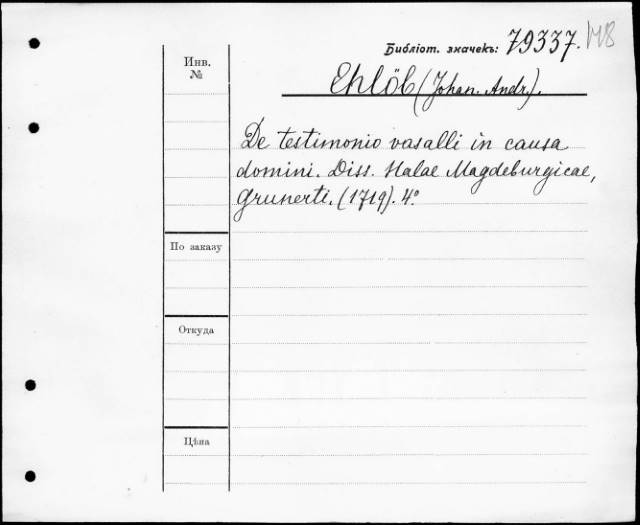 Библіот. значекъ: 79337.
Инв.
№
Ehlöb (Johan. Andr.).
De testimonio vasalli in causa
domini. Diss. Halae Magdeburgicae,
Grunerti. (1719). 4°
По заказу
Откуда
Цѣна